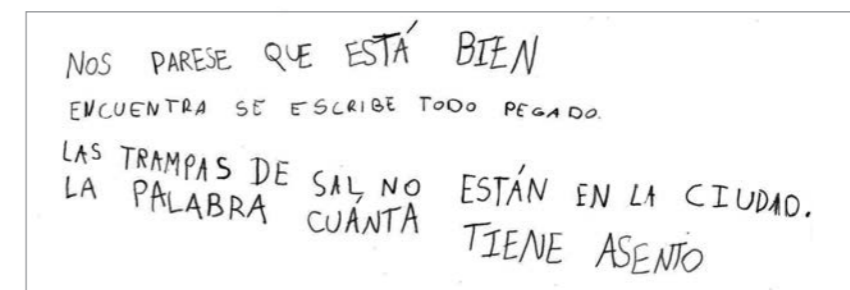 NOS PARESE QUE ESTÁ BIEN
ENCUENTRA SE ESCRIBE TODO PEGADO.
LAS TRAMPAS DE SAL NO ESTÁN EN LA CIUDAD.
LA PALABRA CUÁNTA TIENE ASENTO